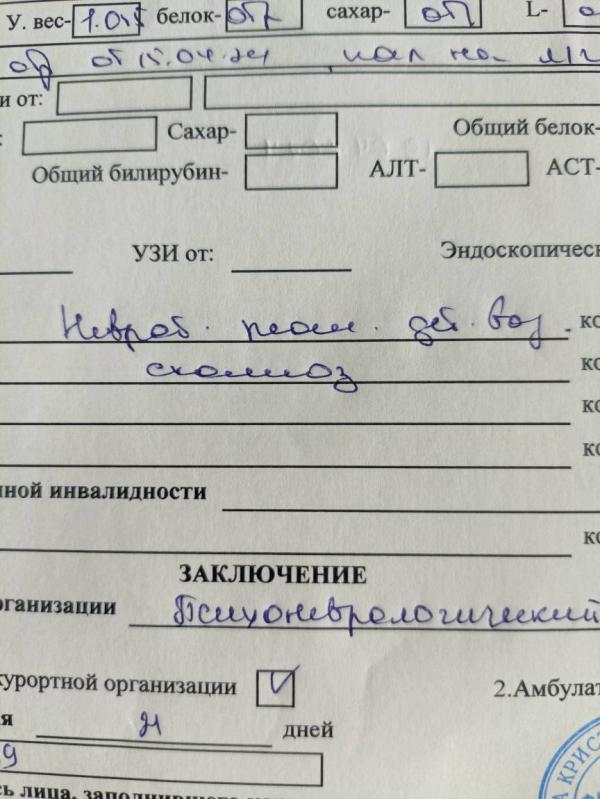 У. вес- 1.015 белок- отр сахар- отр L-
от 15.04.24 кал на
и от:
Сахар- Общий белок-
Общий билирубин- АЛТ- АСТ-
УЗИ от: Эндоскопическ
Невроб. псом. дет. воз. ко
сколиоз ко
ко
ко
нной инвалидности
ко
ЗАКЛЮЧЕНИЕ
рганизации Психоневрологический
курортной организации V 2.Амбулат
я 21 дней
9
А КРИСТ
сь лица, заполнившего